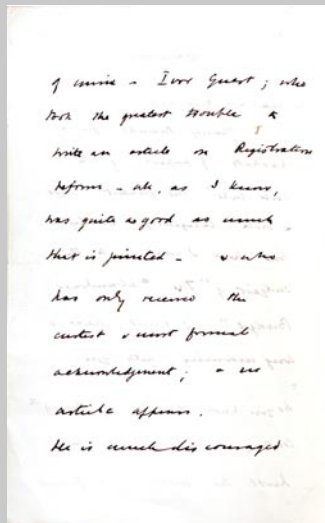 of mine - Ivor Guest; who
took the greatest trouble to
write an article on Registration
Reform - wh, as I know,
was quite as good as much
that is printed - & who
has only received the
curtest & most formal
acknowledgement; & no
article appears.
He is much discouraged